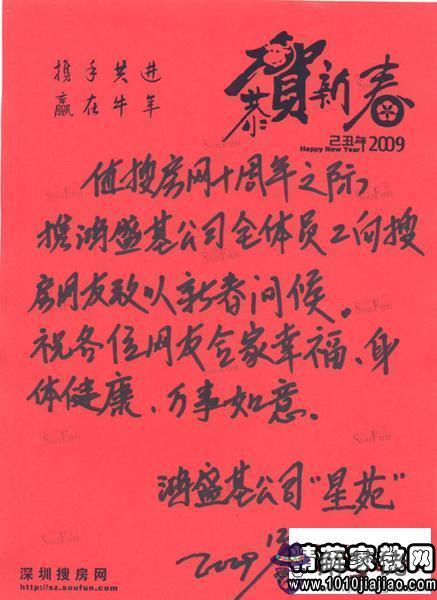 携手共进
赢在牛年
恭賀新春
己丑年 2009
Happy New Year!
值搜房网十周年之际，
携鸿盛基公司全体员工向搜
房网友致以新春问候。
祝各位网友合家幸福、身
体健康、万事如意。
鸿盛基公司“星苑”
深圳搜房网
http://sz.soufun.com
SouFun
www.1010jiajiao.com